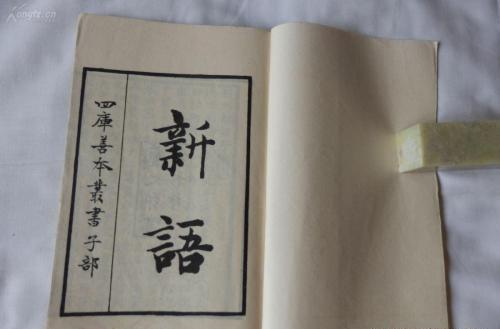 Kongfz.cn
新語
四庫善本叢書子部